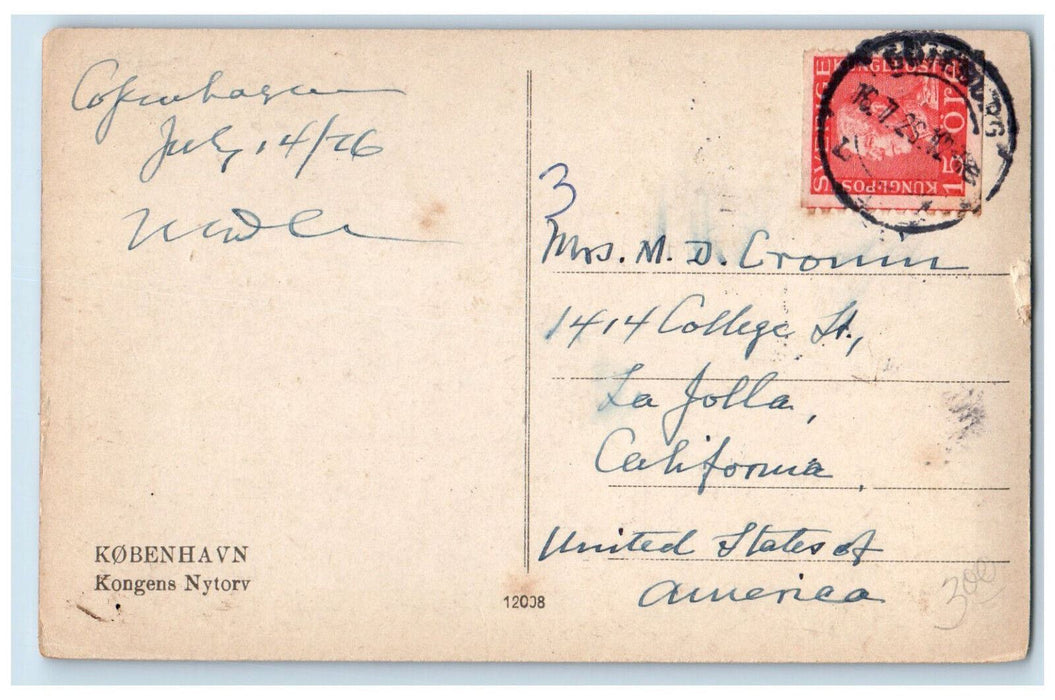 Copenhagen
July 14/26
KØBENHAVN
Kongens Nytorv
12008
SVERIGE
KUNGL.POST
15 ÖRE
3
Mrs. M. D. Cronin
1414 College St,
La Jolla,
California,
United States of
America